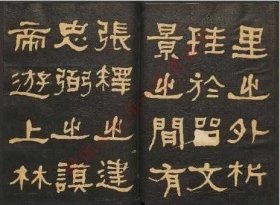 里之外析
珪於留文
景之間有
張釋之建
忠弼之謨
帝遊上林